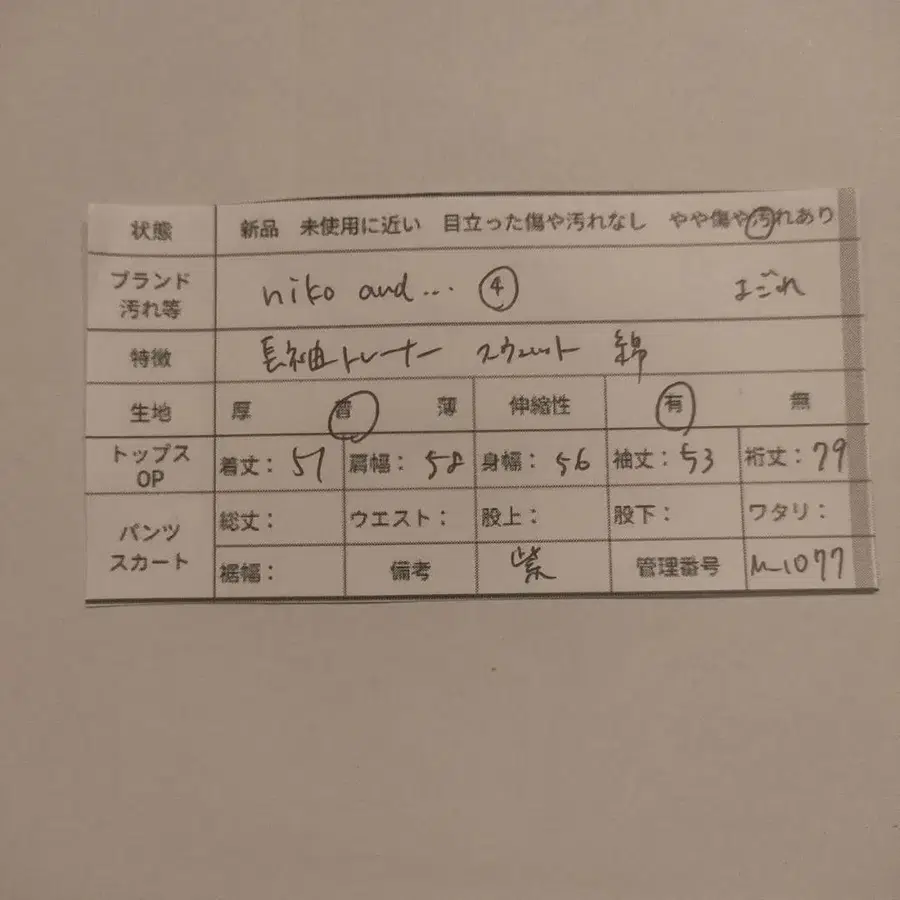 状態 新品 未使用に近い 目立った傷や汚れなし やや傷や汚れあり
ブランド 汚れ等 niko and... ④ よごれ
特徴 長袖トレーナー スウェット 綿
生地 厚 普 薄 伸縮性 有 無
トップス OP 着丈：57 肩幅：58 身幅：56 袖丈：53 裄丈：79
パンツ スカート 総丈： ウエスト： 股上： 股下： ワタリ：
裾幅： 備考 紫 管理番号 M1077